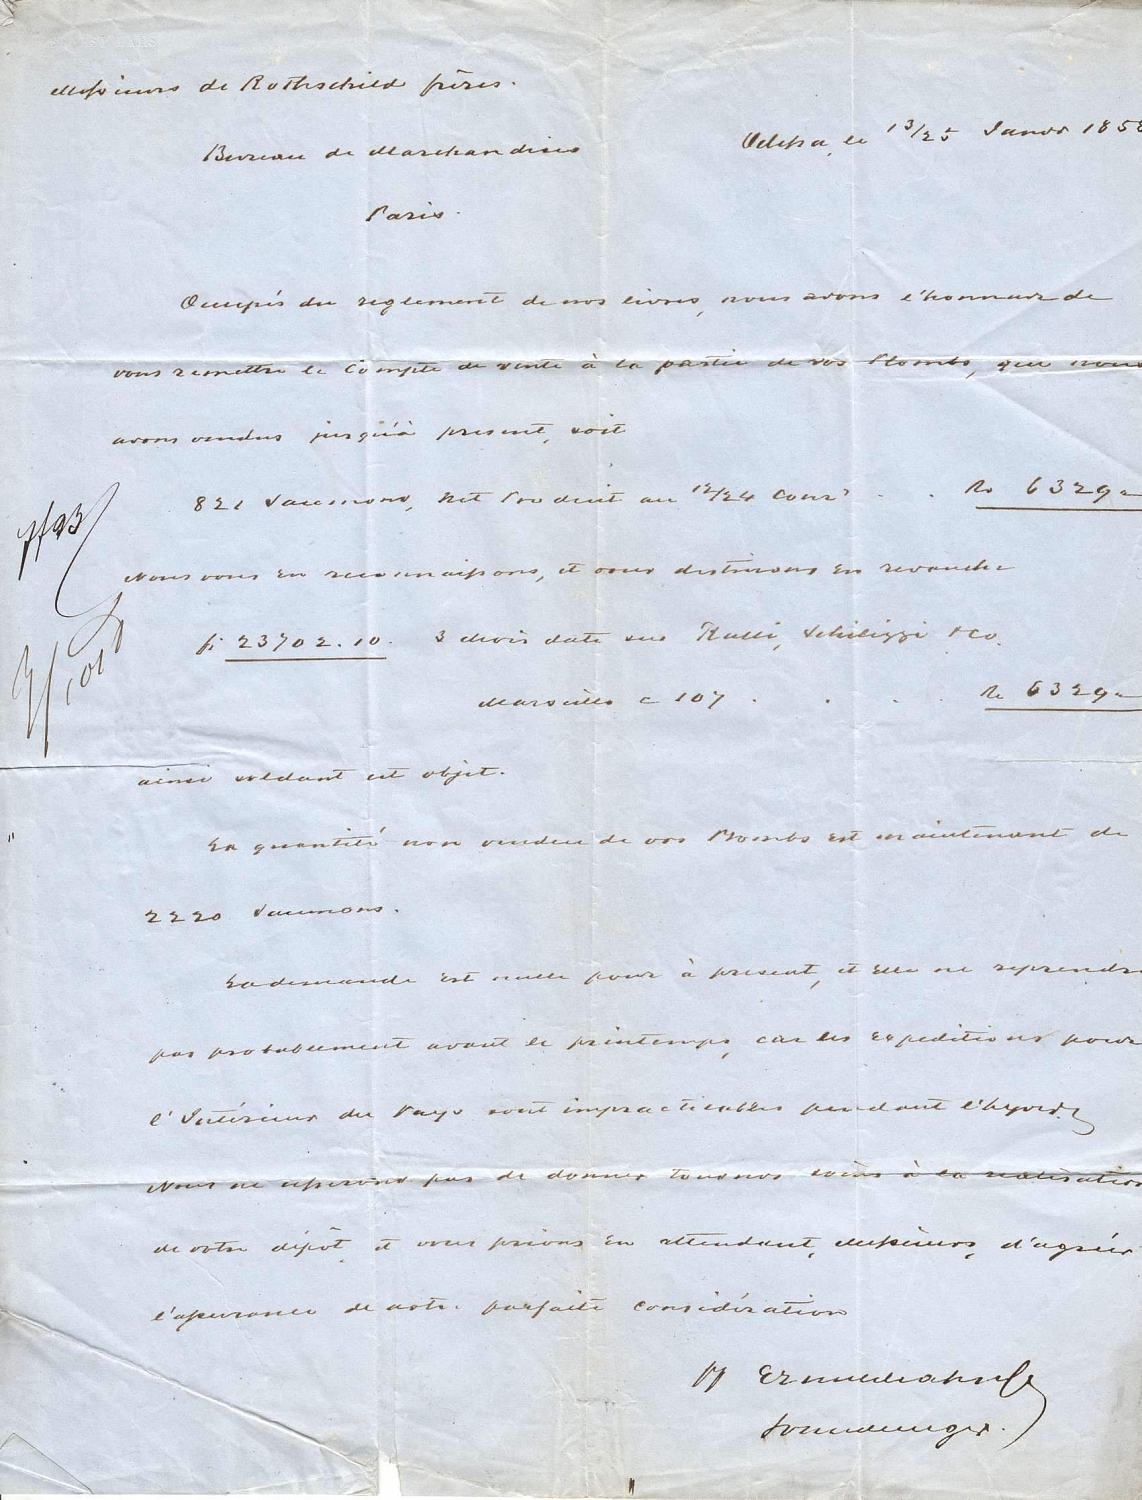 Messieurs de Rothschild frères.
Odessa, le 13/25 Janvr 1858
Bureau de Marchandises
Paris.
Occupés du reglement de nos livres, nous avons l'honneur de
vous remettre le Compte de vente à la partie de vos Plombs, que nous
avons vendus jusqu'à présent, soit
821 Saumons, Net Produit au 12/24 Cour. . . Ro 6329
Nous vous en reconnaissons, et vous destinons en revanche
fs 23702.10. 3 mois date sur Ralli, Schilizzi & Co.
Marseille c 107 . . . . Ro 6329
ainsi soldant cet objet.
La quantité non vendue de vos Plombs est maintenant de
2220 Saumons.
La demande est nulle pour à présent, et Elle ne reprendra
pas probablement avant le printemps, car les expeditions pour
l'Intérieur du Pays sont impracticables pendant l'hyver.
Nous ne cesserons pas de donner tous nos soins à la realisation
de votre dépôt, et vous prions en attendant, Messieurs, d'agréer
l'assurance de notre parfaite considération